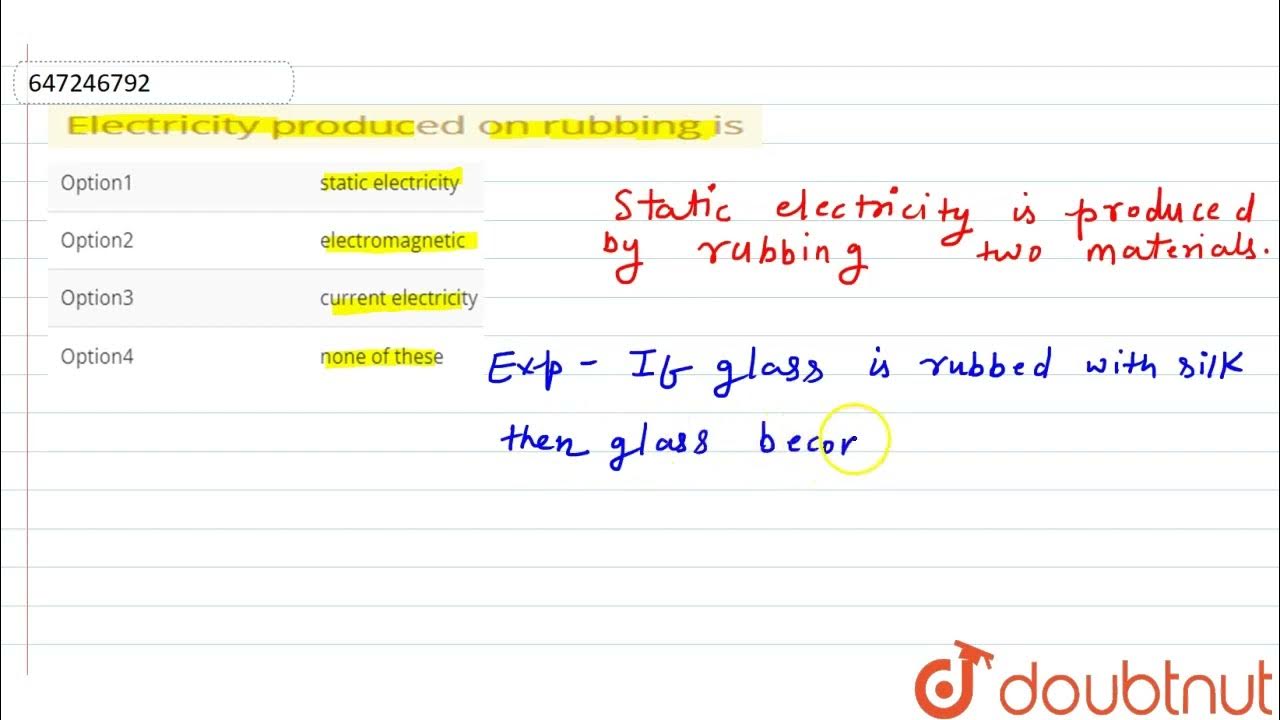 647246792
Electricity produced on rubbing is
Option1 static electricity
Option2 electromagnetic
Option3 current electricity
Option4 none of these
Static electricity is produced
by rubbing two materials.
Exp - If glass is rubbed with silk
then glass becor
doubtnut